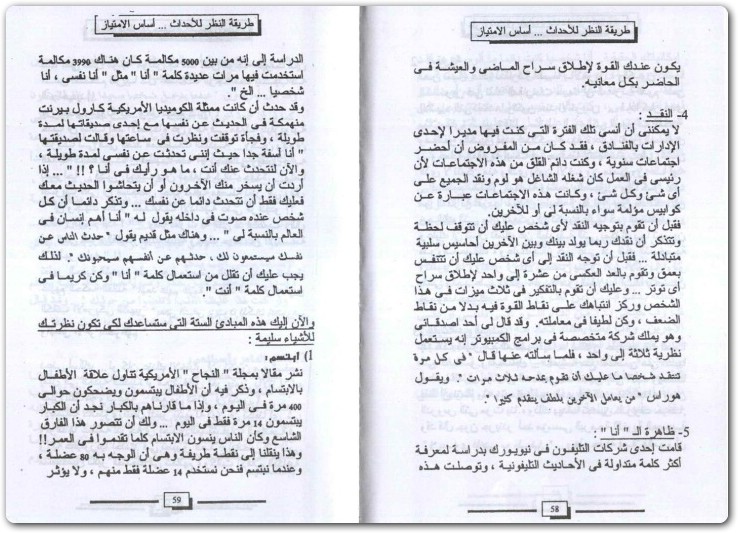 طريقة النظر للأحداث ... أساس الامتياز
يكون عندك القوة لإطلاق سراح الماضى والعيشة فى
الحاضر بكل معانيه
4- النقد :
لا يمكننى أن أنسى تلك الفترة التى كنت فيها مديرا لإحدى
الإدارات بالفنادق ، فقد كان من المفروض أن أحضر
اجتماعات سنوية ، وكنت دائم القلق من هذه الاجتماعات لأن
رئيسى فى العمل كان شغله الشاغل هو لوم ونقد الجميع على
أى شئ وكل شئ ، وكانت هذه الاجتماعات عبارة عن
كوابيس مؤلمة سواء بالنسبة لى أو للآخرين.
فقبل أن تقوم بتوجيه النقد لأى شخص عليك أن تتوقف لحظة
وتتذكر أن نقدك ربما يولد بينك وبين الآخرين أحاسيس سلبية
متبادلة ... فقبل أن توجه النقد إلى أى شخص عليك أن تتنفس
بعمق وتقوم بالعد العكسى من عشرة إلى واحد لإطلاق سراح
أى توتر ... وعليك أن تقوم بالتفكير فى ثلاث ميزات فى هذا
الشخص وركز انتباهك على نقاط القوة فيه بدلا من نقاط
الضعف ، وكن لطيفا فى معاملته. وقد قال لى أحد أصدقائى
وهو يملك شركة متخصصة فى برامج الكمبيوتر إنه يستعمل
نظرية ثلاثة إلى واحد ، فلما سألته عنها قال " فى كل مرة
تنتقد شخصا ما عليك أن تقوم بمدحه ثلاث مرات ". ويقول
هوراس " من يعامل الآخرين بلطف يتقدم كثيرا ".
5- ظاهرة الـ " أنا " :
قامت إحدى شركات التليفون فى نيويورك بدراسة لمعرفة
أكثر كلمة متداولة فى الأحاديث التليفونية ، وتوصلت هذه
58
طريقة النظر للأحداث ... أساس الامتياز
الدراسة إلى إنه من بين 5000 مكالمة كان هناك 3990 مكالمة
استخدمت فيها مرات عديدة كلمة " أنا " مثل " أنا نفسى ، أنا
شخصيا ... الخ ".
وقد حدث أن كانت ممثلة الكوميديا الأمريكية كارول بيرنت
منهمكة فى الحديث عن نفسها مع إحدى صديقاتها لمدة
طويلة ، وفجأة توقفت ونظرت فى ساعتها وقالت لصديقتها
" أنا آسفة جدا حيث إننى تحدثت عن نفسى لمدة طويلة ،
والآن لنتحدث عنك أنت ، ما هو رأيك فى أنا ؟ !! " ... إذا
أردت أن يسخر منك الآخرون أو أن يتحاشوا الحديث معك
فعليك فقط أن تتحدث دائما عن نفسك ... وتذكر دائما أن كل
شخص عنده صوت فى داخله يقول له " أنا أهم إنسان فى
العالم بالنسبة لى " ... وهناك مثل قديم يقول " حدث الناس عن
نفسك سيستمعون لك ، حدثهم عن أنفسهم سيحبونك ". لذلك
يجب عليك أن تقلل من استعمال كلمة " أنا " وكن كريما فى
استعمال كلمة " أنت ".
والآن إليك هذه المبادئ الستة التى ستساعدك لكى تكون نظرتك
للأشياء سليمة :
1) ابتسم:
نشر مقالا بمجلة " النجاح " الأمريكية تناول علاقة الأطفال
بالابتسام ، وذكر فيه أن الأطفال يبتسمون ويضحكون حوالى
400 مرة فى اليوم ، وإذا ما قارناهم بالكبار نجد أن الكبار
يبتسمون 14 مرة فقط فى اليوم ... ولك أن تتصور هذا الفارق
الشاسع وكأن الناس ينسون الابتسام كلما تقدموا فى العمر!!
وهذا ينقلنا إلى نقطة طريفة وهى أن الوجه به 80 عضلة ،
وعندما نبتسم فنحن نستخدم 14 عضلة فقط منهم ، ولا يؤثر
59